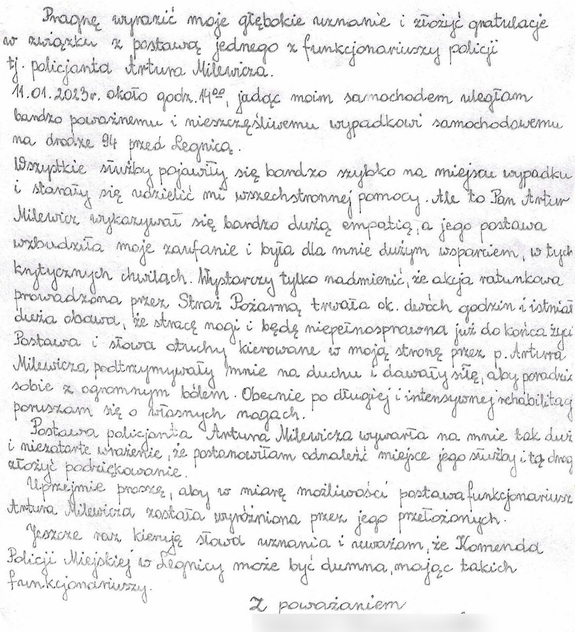 Pragnę wyrazić moje głębokie uznanie i złożyć gratulacje
w związku z postawą jednego z funkcjonariuszy policji
tj. policjanta Artura Milewicza.
11.01.2023r. około godz. 14⁰⁰, jadąc moim samochodem uległam
bardzo poważnemu i nieszczęśliwemu wypadkowi samochodowemu
na drodze 94 przed Legnicą.
Wszystkie służby pojawiły się bardzo szybko na miejscu wypadku
i starały się udzielić mi wszechstronnej pomocy. Ale to Pan Artur
Milewicz wykazywał się bardzo dużą empatią, a jego postawa
wzbudziła moje zaufanie i była dla mnie dużym wsparciem, w tych
krytycznych chwilach. Wystarczy tylko nadmienić, że akcja ratunkowa
prowadzona przez Straż Pożarną trwała ok. dwóch godzin i istniał
duża obawa, że stracę nogi i będę niepełnosprawna już do końca życi
Postawa i słowa otuchy kierowane w moją stronę przez p. Artura
Milewicza podtrzymywały mnie na duchu i dawały siłę, aby poradzić
sobie z ogromnym bólem. Obecnie po długiej i intensywnej rehabilitacj
poruszam się o własnych nogach.
Postawa policjanta Artura Milewicza wywarła na mnie tak duż
i niezatarte wrażenie, że postanowiłam odnaleźć miejsce jego służby i tą drog
złożyć podziękowanie.
Uprzejmie proszę, aby w miarę możliwości postawa funkcjonariusz
Artura Milewicza została wyróżniona przez jego przełożonych.
Jeszcze raz kieruję słowa uznania i uważam, że Komenda
Policji Miejskiej w Legnicy może być dumna, mając takich
funkcjonariuszy.
Z poważaniem